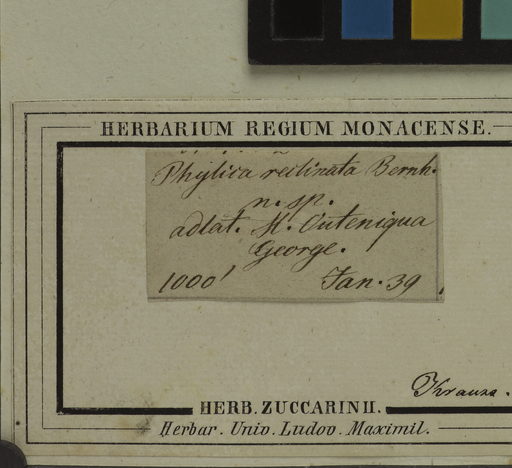 HERBARIUM REGIUM MONACENSE.
Phylica reclinata Bernh.
n. sp.
adlat. M. Outeniqua
George.
1000' Jan. 39
Krauss.
HERB. ZUCCARINII.
Herbar. Univ. Ludov. Maximil.